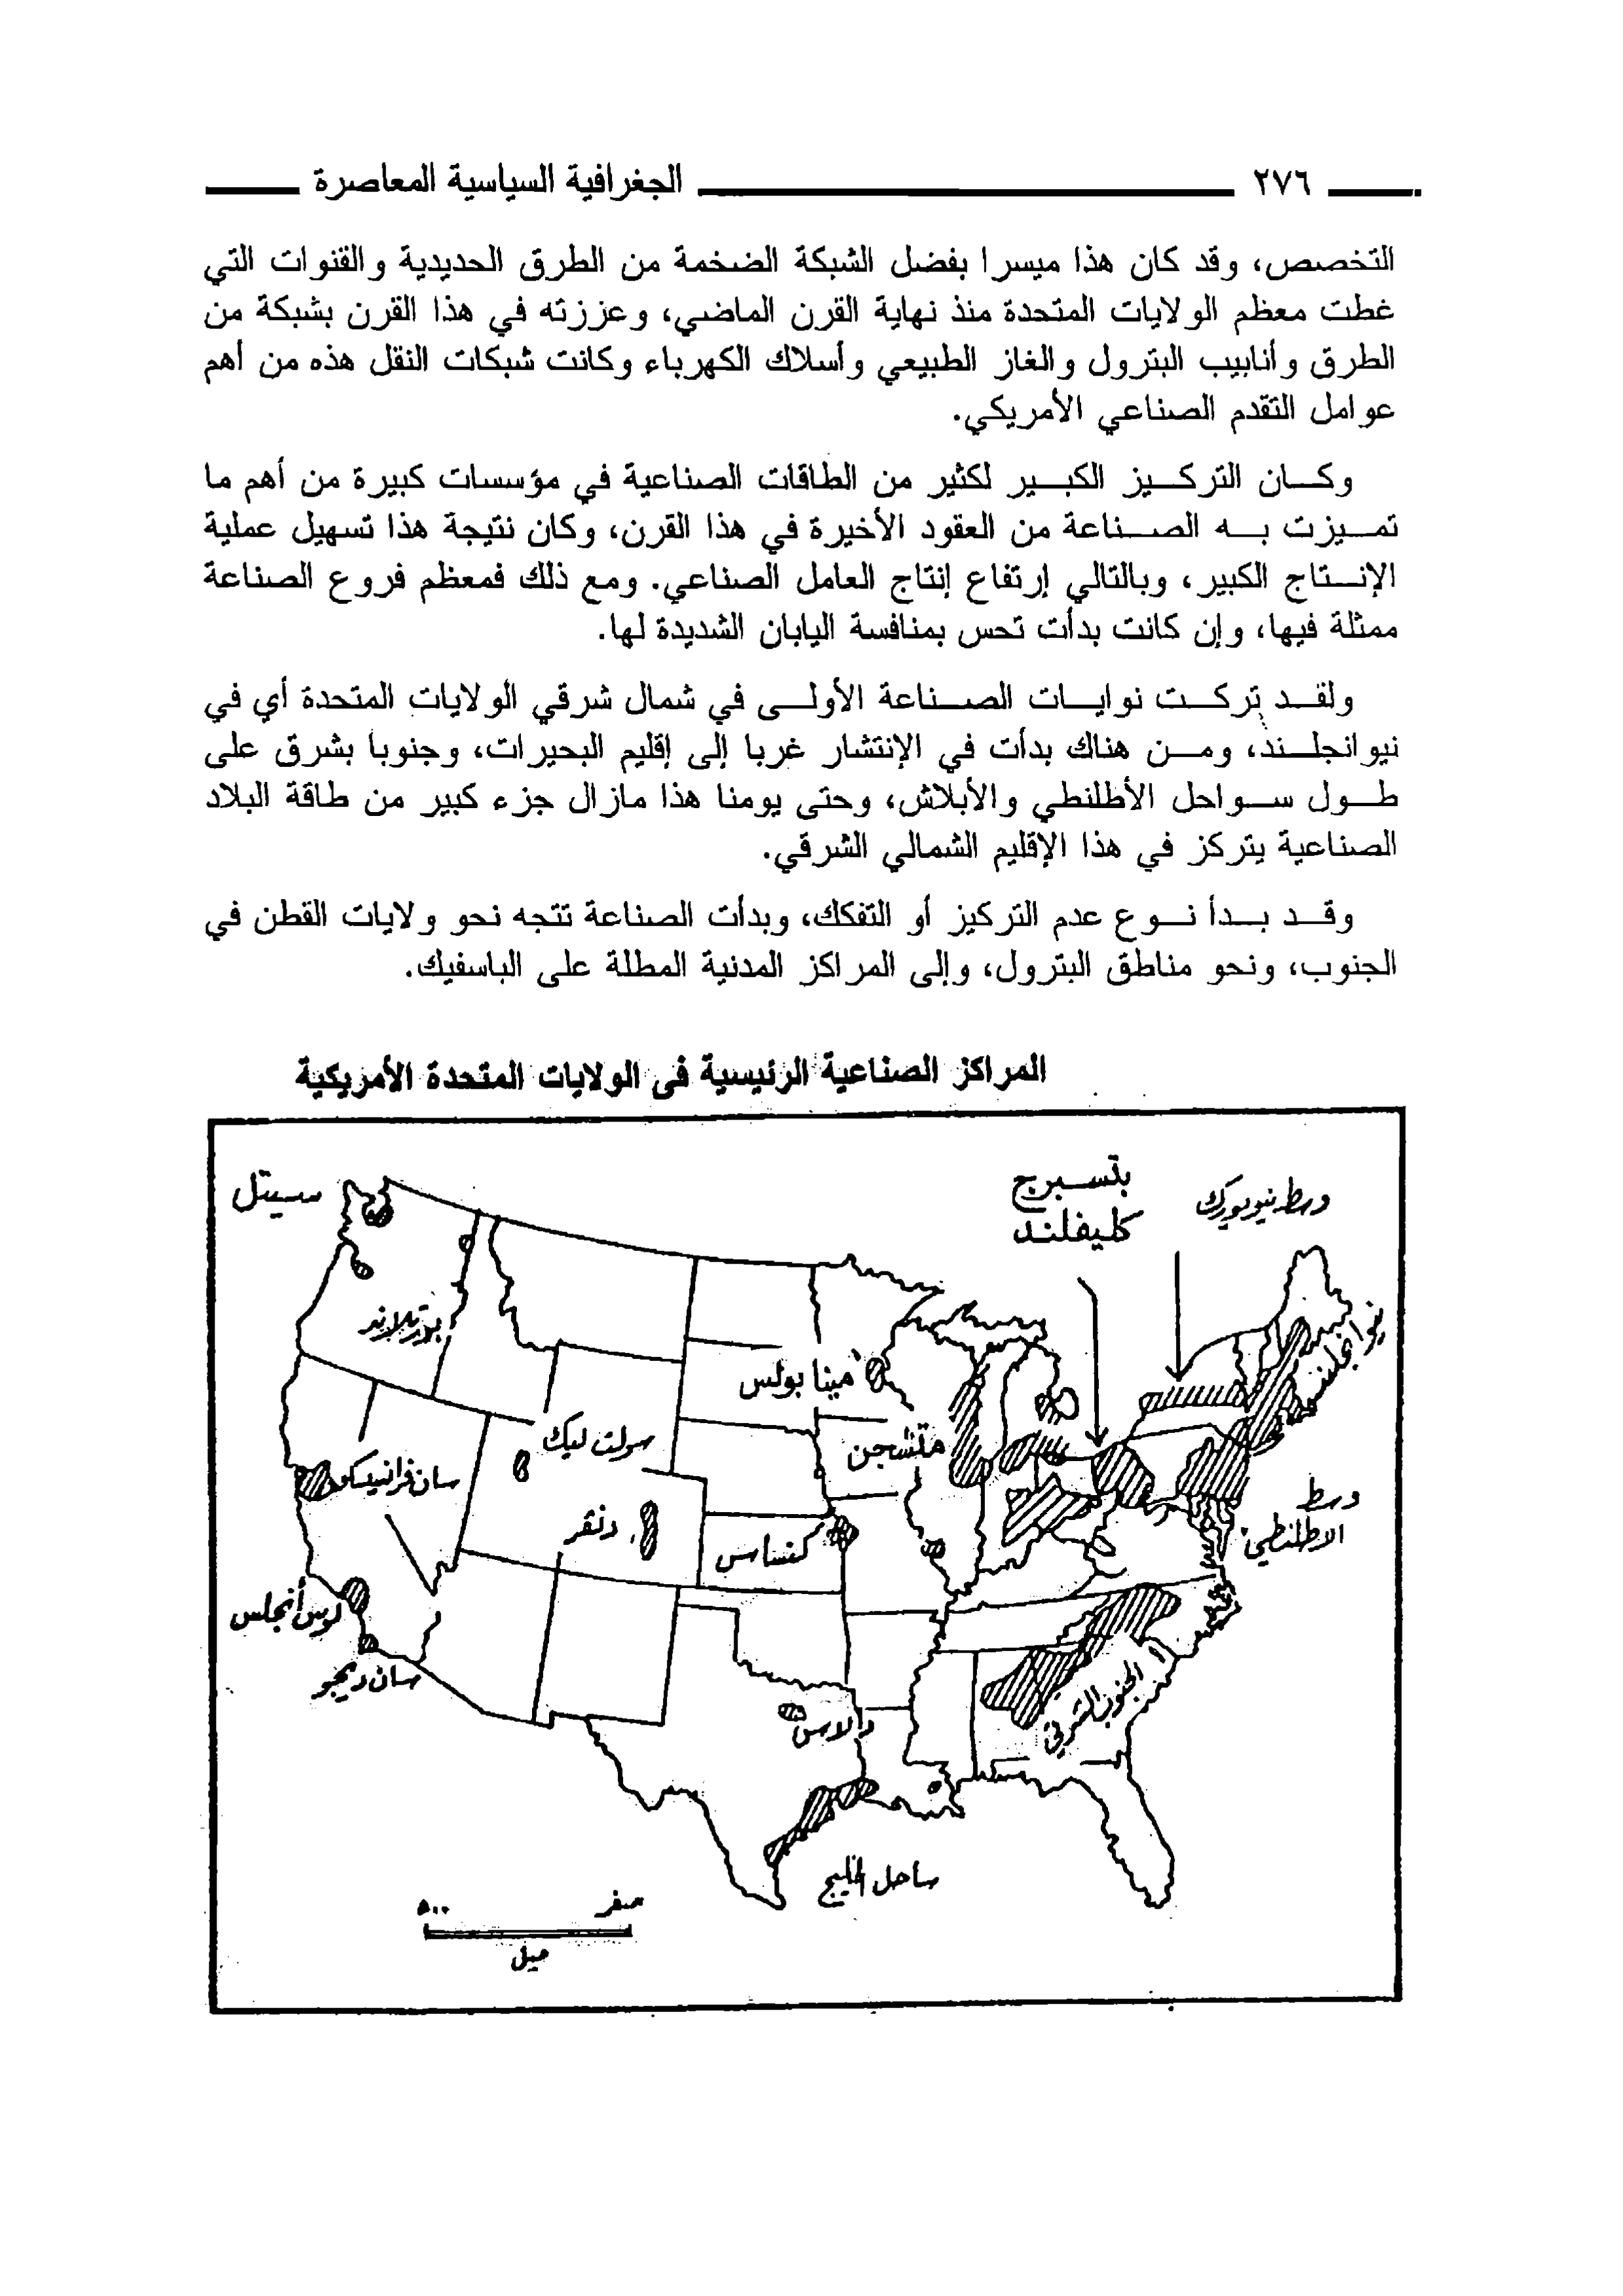 ٢٧٦ الجغرافية السياسية المعاصرة
التخصص، وقد كان هذا ميسرا بفضل الشبكة الضخمة من الطرق الحديدية والقنوات التي
غطت معظم الولايات المتحدة منذ نهاية القرن الماضي، وعززته في هذا القرن بشبكة من
الطرق وأنابيب البترول والغاز الطبيعي وأسلاك الكهرباء وكانت شبكات النقل هذه من أهم
عوامل التقدم الصناعي الأمريكي.
وكان التركيز الكبير لكثير من الطاقات الصناعية في مؤسسات كبيرة من أهم ما
تميزت به الصناعة من العقود الأخيرة في هذا القرن، وكان نتيجة هذا تسهيل عملية
الإنتاج الكبير، وبالتالي إرتفاع إنتاج العامل الصناعي. ومع ذلك فمعظم فروع الصناعة
ممثلة فيها، وإن كانت بدأت تحس بمنافسة اليابان الشديدة لها.
ولقد تركت نوايات الصناعة الأولى في شمال شرقي الولايات المتحدة أي في
نيوانجلند، ومن هناك بدأت في الإنتشار غربا إلى إقليم البحيرات، وجنوبا بشرق على
طول سواحل الأطلنطي والأبلاش، وحتى يومنا هذا مازال جزء كبير من طاقة البلاد
الصناعية يتركز في هذا الإقليم الشمالي الشرقي.
وقد بدأ نوع عدم التركيز أو التفكك، وبدأت الصناعة تتجه نحو ولايات القطن في
الجنوب، ونحو مناطق البترول، وإلى المراكز المدنية المطلة على الباسفيك.
المراكز الصناعية الرئيسية فى الولايات المتحدة الأمريكية
وسط نيويورك
بتسبرج
كليفلند
سيتل
نيوانجلند
بورتلاند
مينا بولس
متشجن
سولت ليك
سان فرانسيسكو
وسط
الاطلنطي
دنفر
كنساس
لوس أنجلس
سان ديجو
الجنوب الشرقي
دالاس
ساحل الخليج
صفر ٥٠٠
ميل